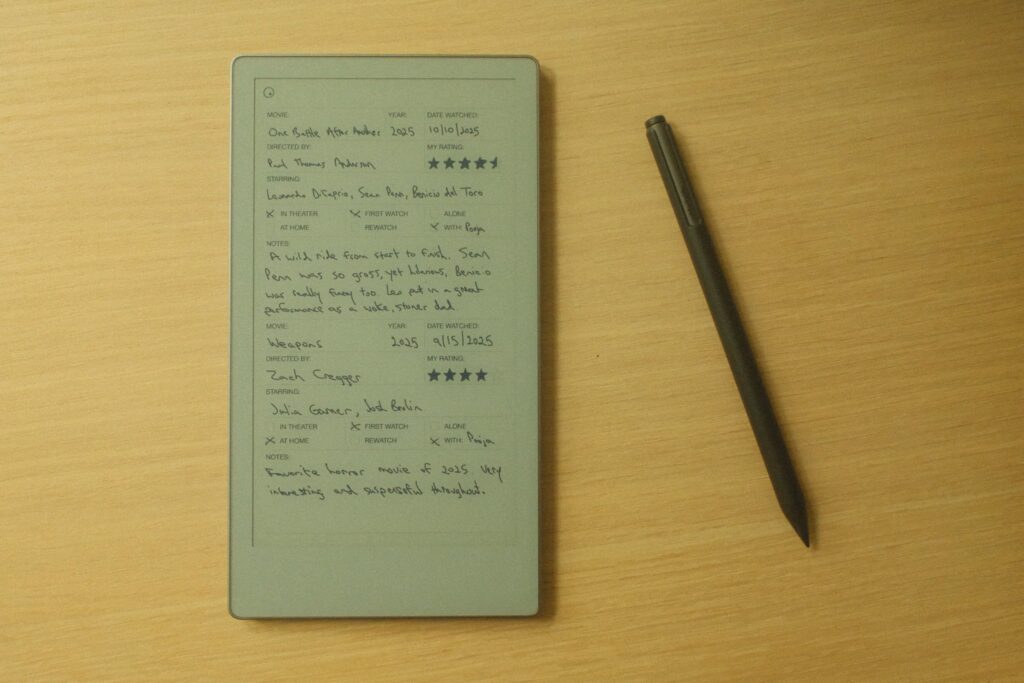 MOVIE: YEAR: DATE WATCHED:
One Battle After Another 2025 10/10/2025
DIRECTED BY: MY RATING:
Paul Thomas Anderson ★★★★⯨
STARRING:
Leonardo DiCaprio, Sean Penn, Benicio del Toro
X IN THEATER X FIRST WATCH ALONE
AT HOME REWATCH X WITH: Pooja
NOTES:
A wild ride from start to finish. Sean
Penn was so gross, yet hilarious, Benicio
was really funny too. Leo put in a great
performance as a woke, stoner dad.
MOVIE: YEAR: DATE WATCHED:
Weapons 2025 9/15/2025
DIRECTED BY: MY RATING:
Zach Cregger ★★★★
STARRING:
Julia Garner, Josh Brolin
IN THEATER X FIRST WATCH ALONE
X AT HOME REWATCH X WITH: Pooja
NOTES:
Favorite horror movie of 2025. Very
interesting and suspenseful throughout.